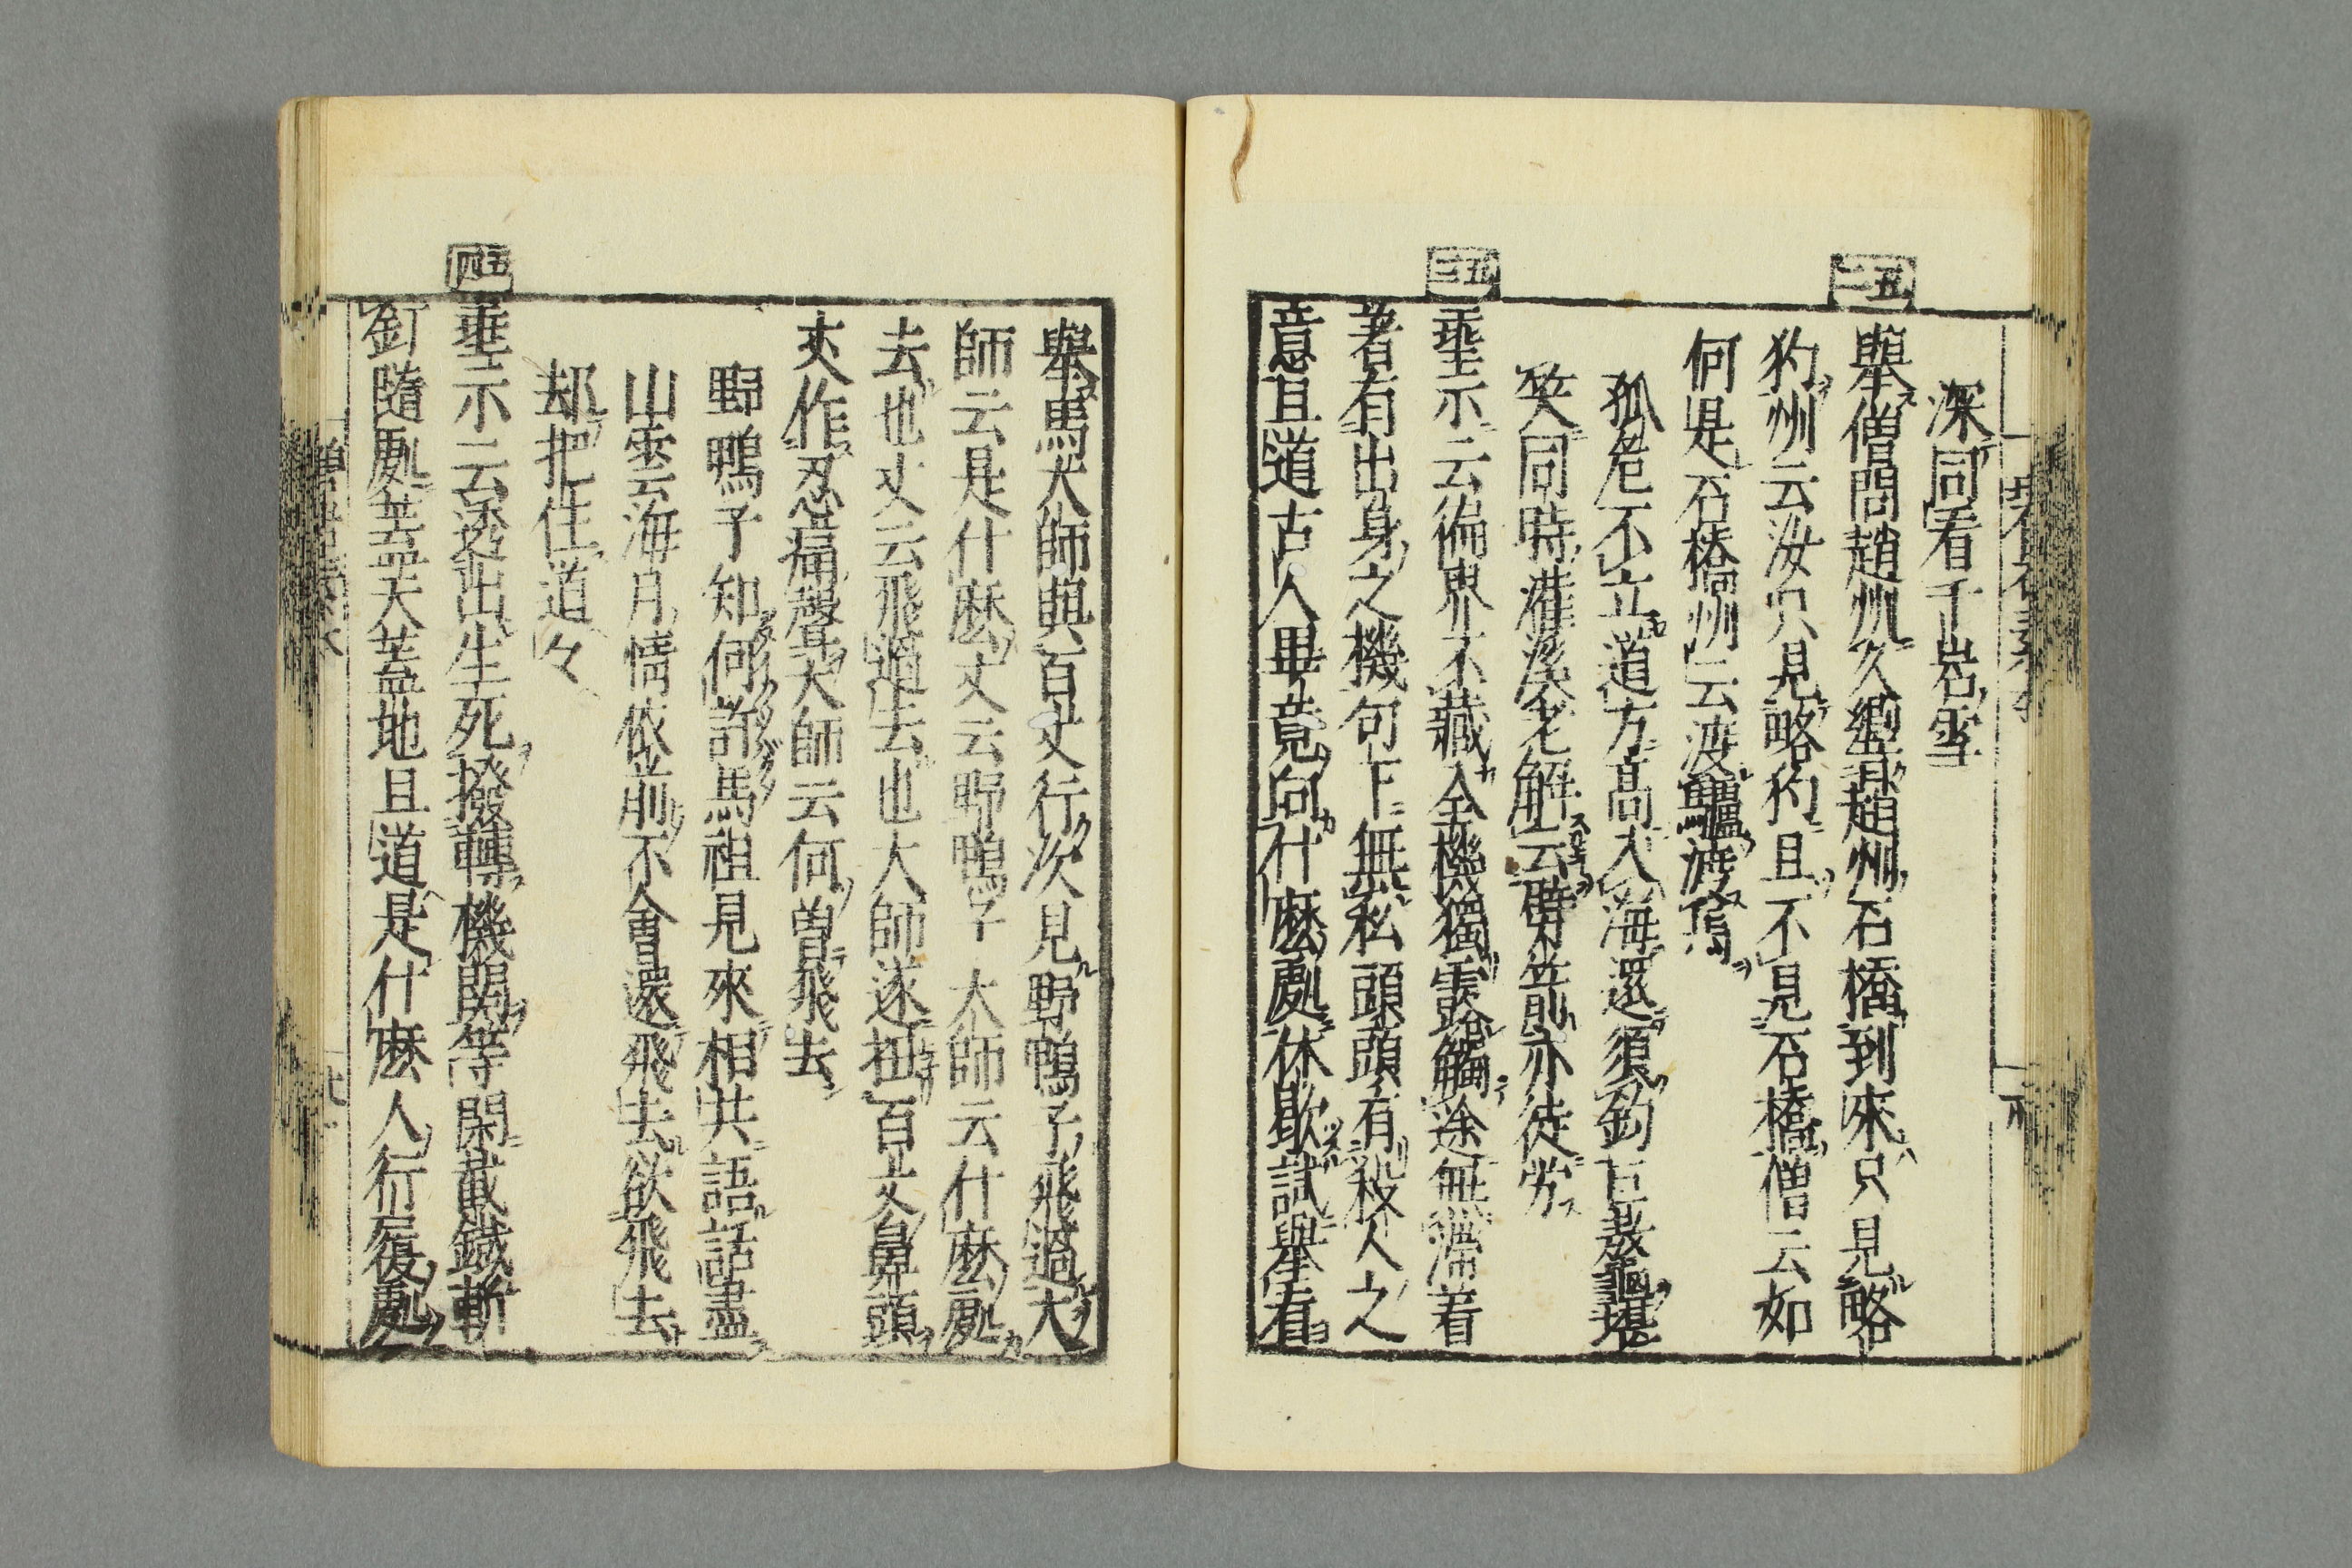 深同看千岩雪
五二
舉僧問趙州久響趙州石橋到來只見略
彴州云汝只見略彴且不見石橋僧云如
何是石橋州云渡驢渡馬
孤危不立道方高入海還須釣巨鰲堪
笑同時灌溪老解云劈箭亦徒労
五三
垂示云徧界不藏全機獨露觸途無滯着
著有出身之機句下無私頭頭有殺人之
意且道古人畢竟向什麽處休歇試舉看
舉馬大師與百丈行次見野鴨子飛過大
師云是什麽丈云野鴨子大師云什麽處
去也丈云飛過去也大師遂扭百丈鼻頭
丈作忍痛聲大師云何曽飛去
野鴨子知何許馬祖見來相共語話盡
山雲海月情依前不會還飛去欲飛去
却把住道々
五四
垂示云透出生死撥轉機関等閑截鐵斬
釘隨處盖天盖地且道是什麽人行履處